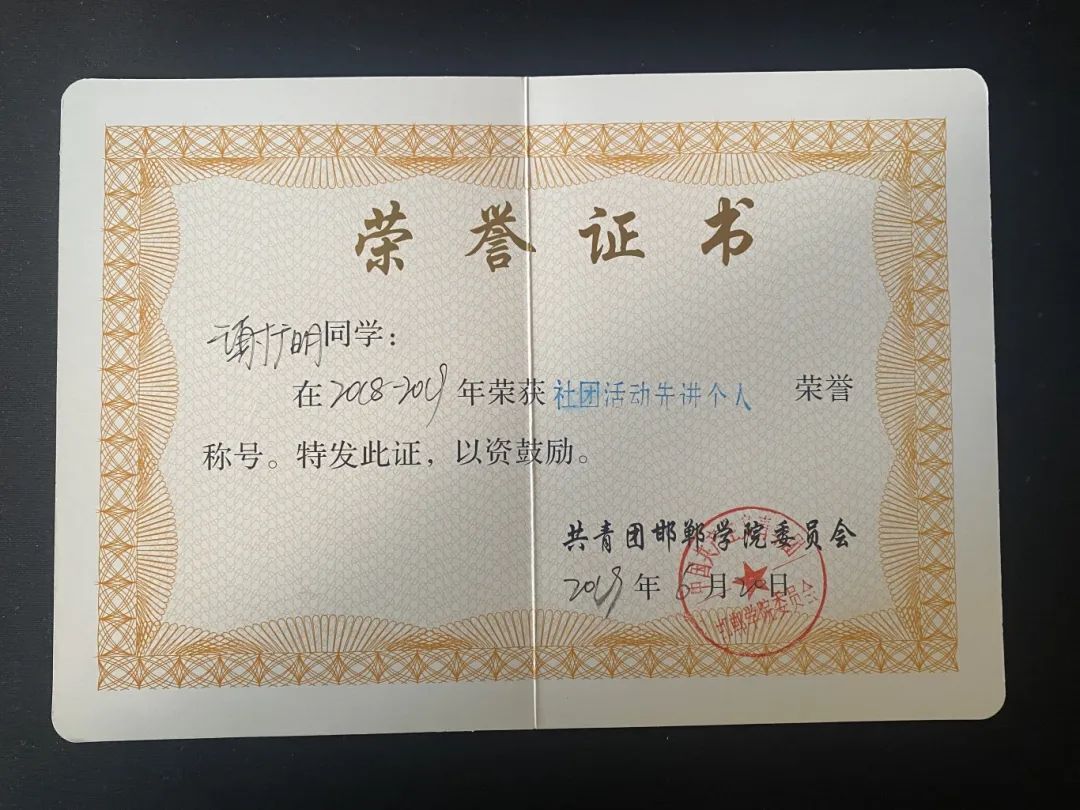 荣誉证书
谢于明同学：
在2018-2019年荣获社团活动先进个人 荣誉
称号。特发此证，以资鼓励。
共青团邯郸学院委员会
2019年6月20日
邯郸学院委员会